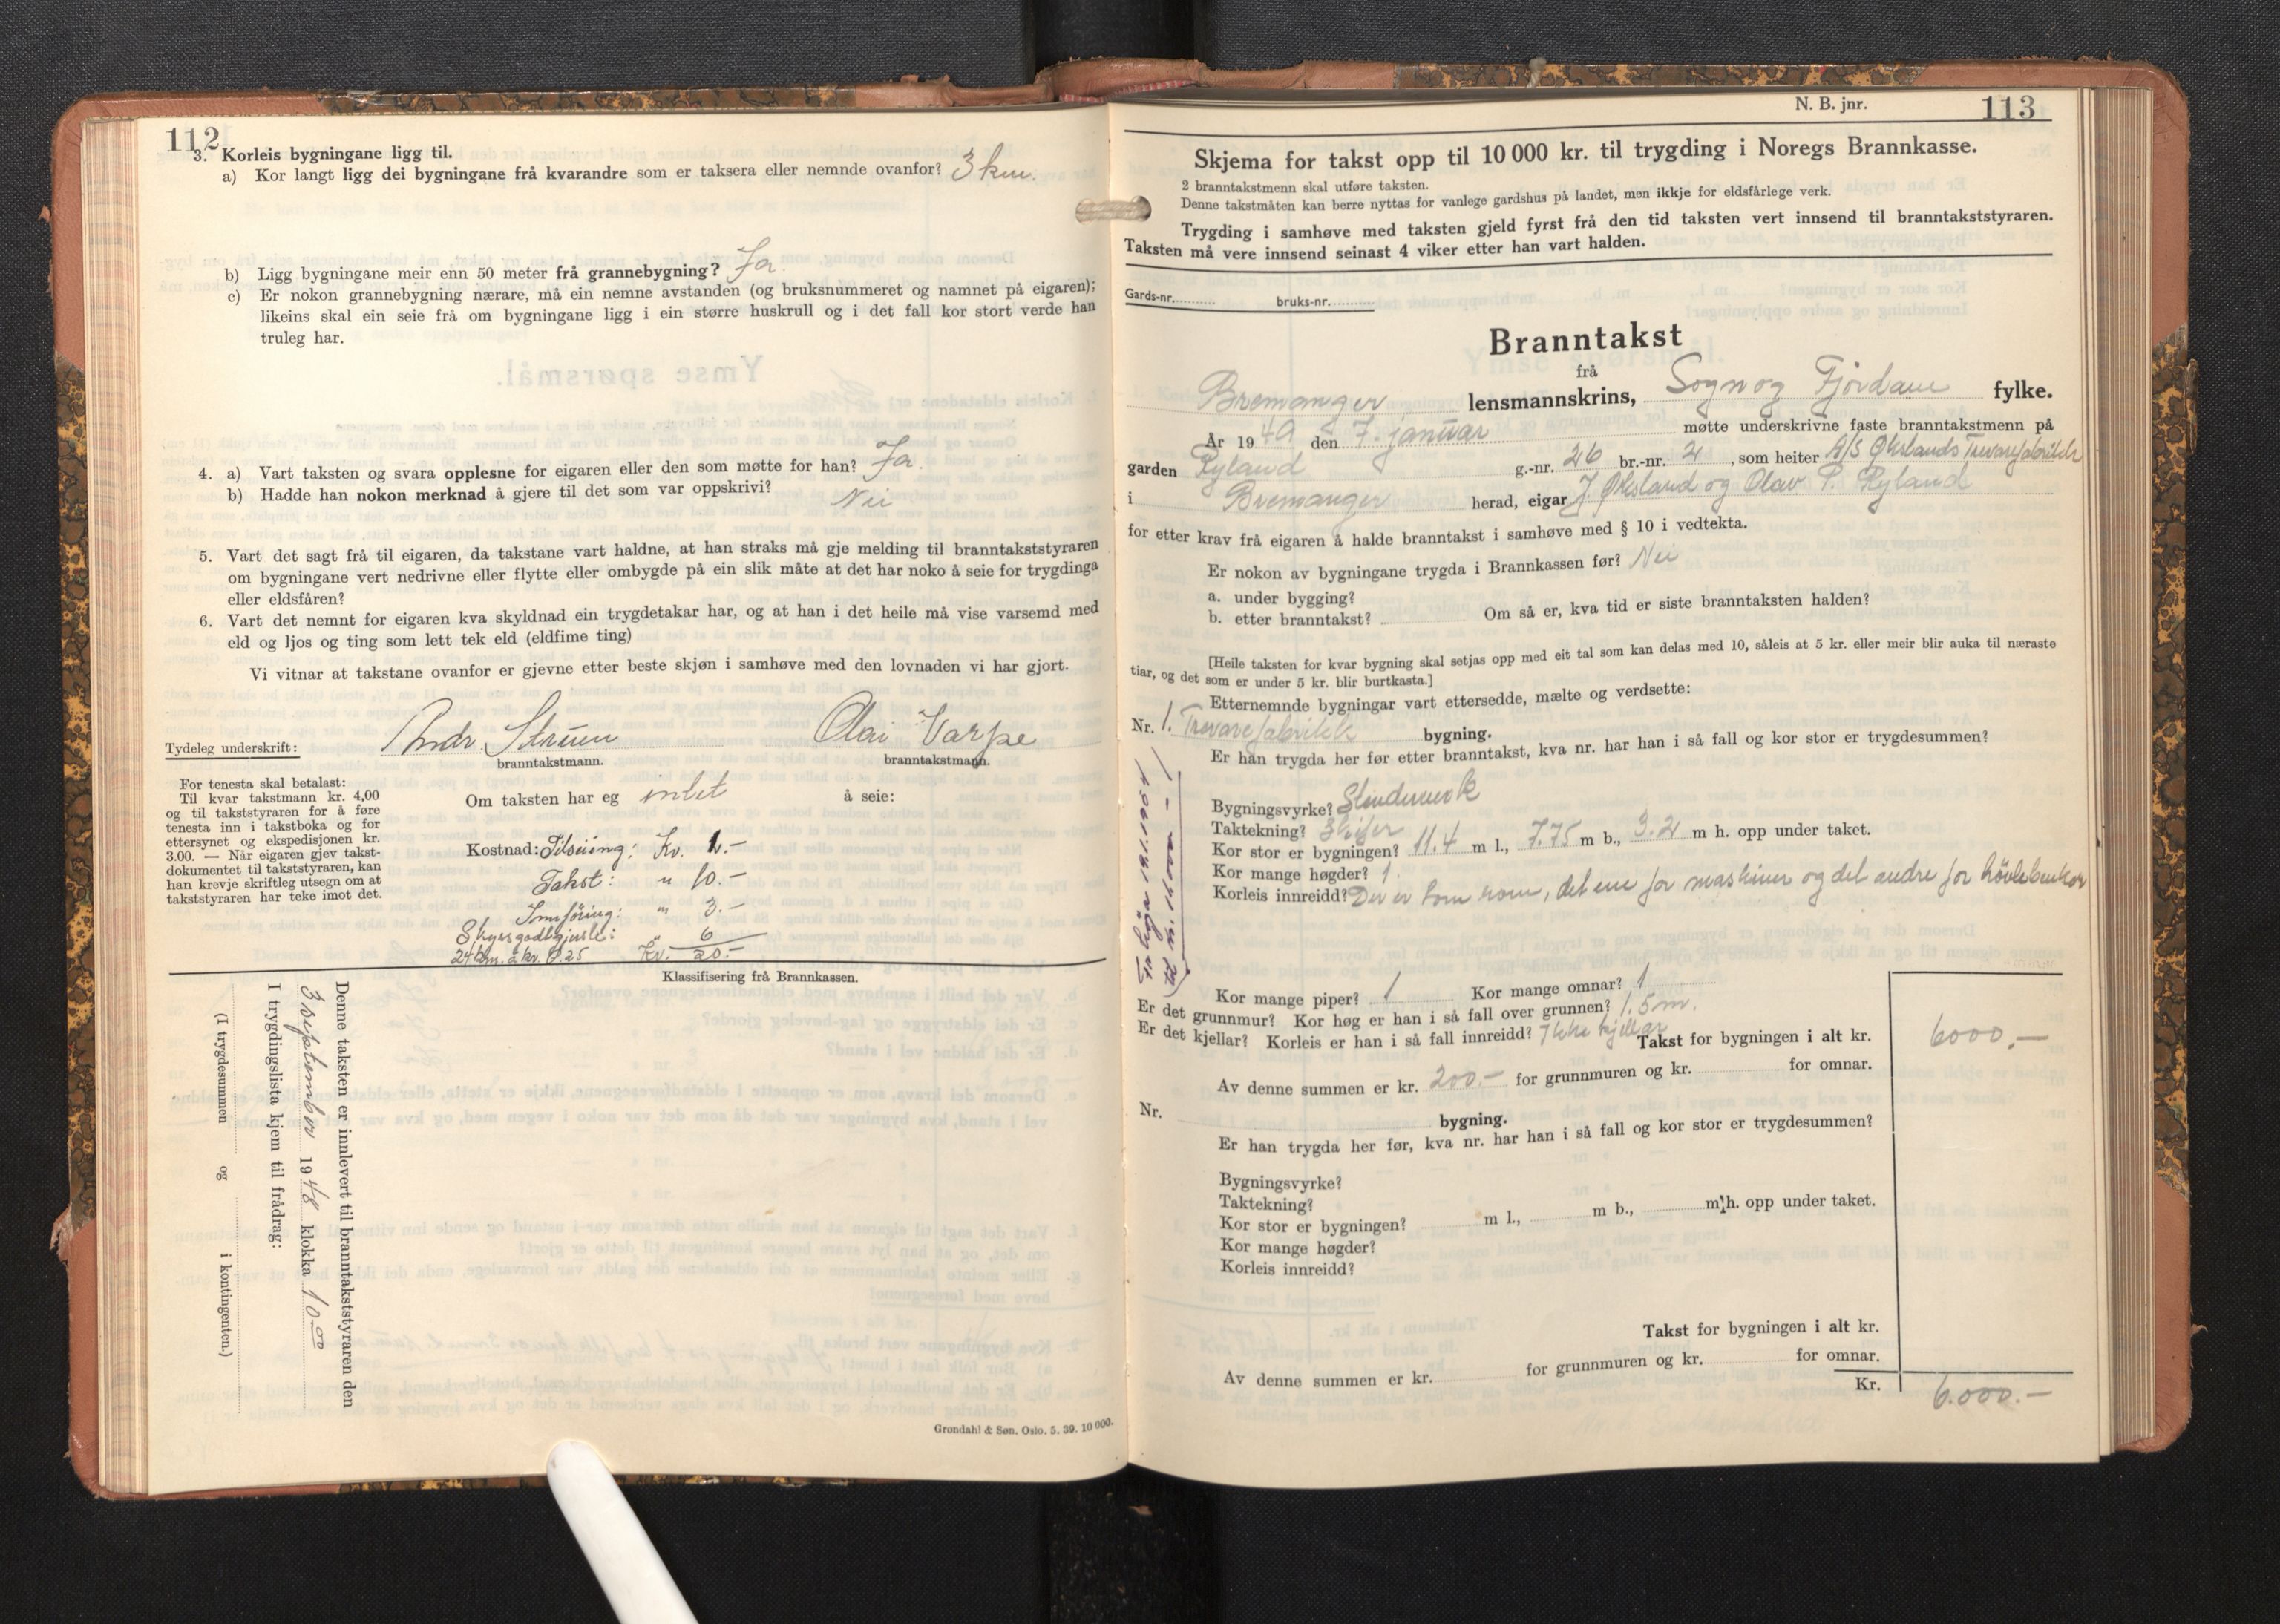 112
3. Korleis bygningane ligg til.
a) Kor langt ligg dei bygningane frå kvarandre som er taksera eller nemnde ovanfor? 3 km.
b) Ligg bygningane meir enn 50 meter frå grannebygning? Ja.
c) Er nokon grannebygning nærare, må ein nemne avstanden (og bruksnummeret og namnet på eigaren);
likeins skal ein seie frå om bygningane ligg i ein større huskrull og i det fall kor stort verde han
truleg har.
4. a) Vart taksten og svara opplesne for eigaren eller den som møtte for han? Ja.
b) Hadde han nokon merknad å gjere til det som var oppskrivi? Nei
5. Vart det sagt frå til eigaren, da takstane vart haldne, at han straks må gje melding til branntakststyraren
om bygningane vert nedrivne eller flytte eller ombygde på ein slik måte at det har noko å seie for trygdinga
eller eldsfåren?
6. Vart det nemnt for eigaren kva skyldnad ein trygdetakar har, og at han i det heile må vise varsemd med
eld og ljos og ting som lett tek eld (eldfime ting)
Vi vitnar at takstane ovanfor er gjevne etter beste skjøn i samhøve med den lovnaden vi har gjort.
Tydeleg underskrift: Andr. Struen Olai Varpe
branntakstmann. branntakstmann.
For tenesta skal betalast:
Til kvar takstmann kr. 4,00
og til takststyraren for å føre
tenesta inn i takstboka og for
ettersynet og ekspedisjonen kr.
3.00. — Når eigaren gjev takst-
dokumentet til takststyraren, kan
han krevje skriftleg utsegn om at
takststyraren har teke imot det.
Om taksten har eg intet å seie:
Kostnad: Tilsiing: Kr. 1.-
Takst: " 10.-
Innföring: " 3.-
Skyssgodtgjersle: " 6
24 km. à kr. 0.25 Kr. 20.-
Klassifisering frå Brannkassen.
Denne taksten er innlevert til branntakststyraren den
3 september 1948 klokka 10.00
I trygdingslista kjem til frådrag:
(I trygdesummen og i kontingenten.)
Grøndahl & Søn. Oslo. 5. 39. 10 000.
N. B. jnr. 113
Skjema for takst opp til 10 000 kr. til trygding i Noregs Brannkasse.
2 branntakstmenn skal utføre taksten.
Denne takstmåten kan berre nyttas for vanlege gardshus på landet, men ikkje for eldsfårlege verk.
Trygding i samhøve med taksten gjeld fyrst frå den tid taksten vert innsend til branntakststyraren.
Taksten må vere innsend seinast 4 viker etter han vart halden.
Gards-nr. bruks-nr.
Branntakst
frå
Bremanger lensmannskrins, Sogn og Fjordane fylke.
År 1949 den 7. januar møtte underskrivne faste branntakstmenn på
garden Ryland g.-nr. 26 br.-nr. 2, som heiter A/S Økslands Trevarefabrikk
i Bremanger herad, eigar J. Øksland og Olav P. Ryland
for etter krav frå eigaren å halde branntakst i samhøve med § 10 i vedtekta.
Er nokon av bygningane trygda i Brannkassen før? Nei
a. under bygging?
b. etter branntakst? Om så er, kva tid er siste branntaksten halden?
[Heile taksten for kvar bygning skal setjas opp med eit tal som kan delas med 10, såleis at 5 kr. eller meir blir auka til næraste
tiar, og det som er under 5 kr. blir burtkasta.]
Etternemnde bygningar vart ettersedde, mælte og verdsette:
Nr. 1. Trevarefabrikk bygning.
Er han trygda her før etter branntakst, kva nr. har han i så fall og kor stor er trygdesummen?
Bygningsvyrke? Stenderverk
Taktekning? Skifer
Kor stor er bygningen? 11.4 m l., 7.75 m b., 3.2 m h. opp under taket.
Kor mange høgder? 1
Korleis innreidd? Der er tom rom, det ene for maskiner og det andre for hövlebenker
Kor mange piper? 1 Kor mange omnar? 1
Er det grunnmur? Kor høg er han i så fall over grunnen? 1.5 m.
Er det kjellar? Korleis er han i så fall innreidd? Ikke kjellar
Takst for bygningen i alt kr. 6000.—
Av denne summen er kr. 200.- for grunnmuren og kr. for omnar.
Nr. bygning.
Er han trygda her før, kva nr. har han i så fall og kor stor er trygdesummen?
Bygningsvyrke?
Taktekning?
Kor stor er bygningen? m l., m b., m h. opp under taket.
Kor mange høgder?
Korleis innreidd?
Takst for bygningen i alt kr.
Av denne summen er kr. for grunnmuren og kr. for omnar.
Kr. 6.000.—